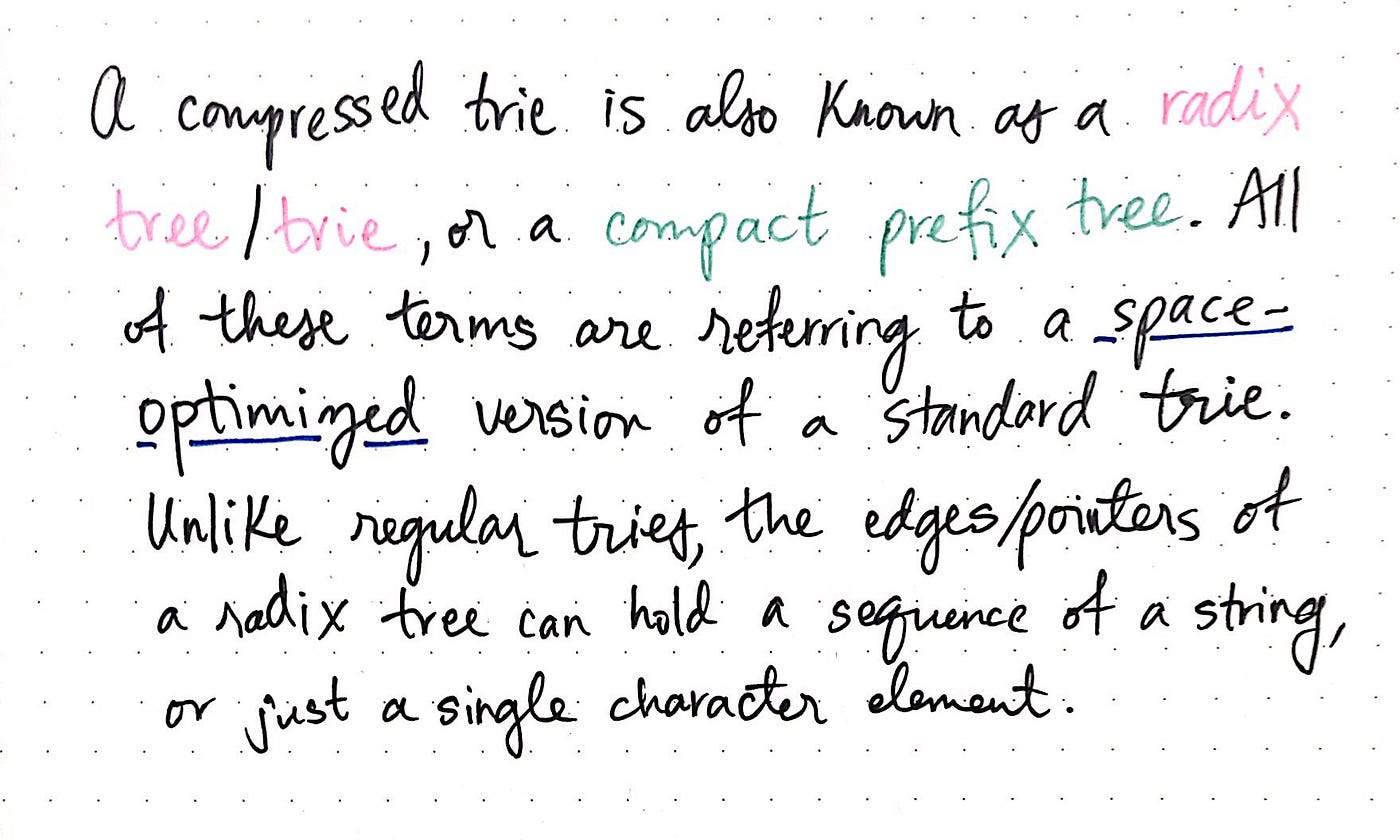 A compressed trie is also known as a radix
tree/trie, or a compact prefix tree. All
of these terms are referring to a space-
optimized version of a standard trie.
Unlike regular tries, the edges/pointers of
a radix tree can hold a sequence of a string,
or just a single character element.